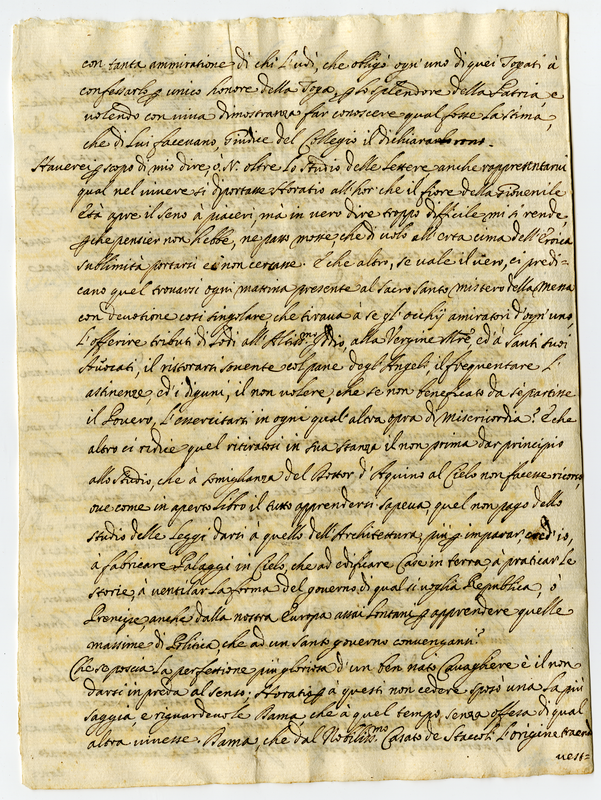 con tanta ammiratione di chi l'udì, che obligò ogn'uno di quei Togati à
confessarlo p unico honore della Toga, p lo splendore della Patria, e
volendo con viva dimostranza far conoscere qual fosse la stima,
che di lui facevano, Giudice del Collegio il dichiararono.
Haverei p scopo di mio dire, ò N. oltre lo studio delle lettere anche rappresentarvi
qual nel vivere si diportasse Horatio all'hor che il fiore della Giovenile
Età apre il seno à piaceri, mà in vero dire troppo difficile mi si rende
pche pensier non hebbe, ne passo mosse, che di volo all'erta cima dell'Eroica
sublimità portarsi ei non cercasse. E che altro, se vale il vero, ci predi=
cano quel trovarsi ogni mattina presente al Sacro Santo mistero della Messa
con devotione così singolare che tirava à se gl'occhij amiratori d'ogn'uno,
l'offerire tributi di lodi all'Altiss.mo Iddio, alla Vergine Mre, ed à Santi suoi
Avvocati, il ristorarsi sovente col pane degl'Angeli, il frequentare l'
astinenze, ed i digiuni, il non volere, che se non beneficato da se partisse
il Povero, l'essercitarsi in ogni qual'altra opra di misericordia? E che
altro ci ridice quel ritirarsi in sua stanza il non prima dar principio
allo studio, che à somiglianza del Dottor d'Aquino al Cielo non facesse ricorso,
ove come in aperto libro il tutto apprendersi sapeva, quel non pago dello
studio delle Leggi darsi à quello dell'Architettura, più p imparar, cred'io,
a fabricare Palaggi in Cielo, che ad edificare Case in terra, à praticar le
storie, à ventilar la forma del governo di qual si voglia Republica, ò
Prencipe anche dalla nostra Europa assai lontani p apprendere quelle
massime di Politica, che ad un santo governo convengansi?
Che se poscia la perfettione più gloriosa d'un ben nato Cavagliere è il non
darsi in preda al senso: Horatio p a questi non cedere sposò una la più
saggia, e riguardevole Dama, che à quel tempo, senza offesa di qual
altra vivesse. Dama, che dal Nobiliss.mo Casato de Staccoli l'origine traendo